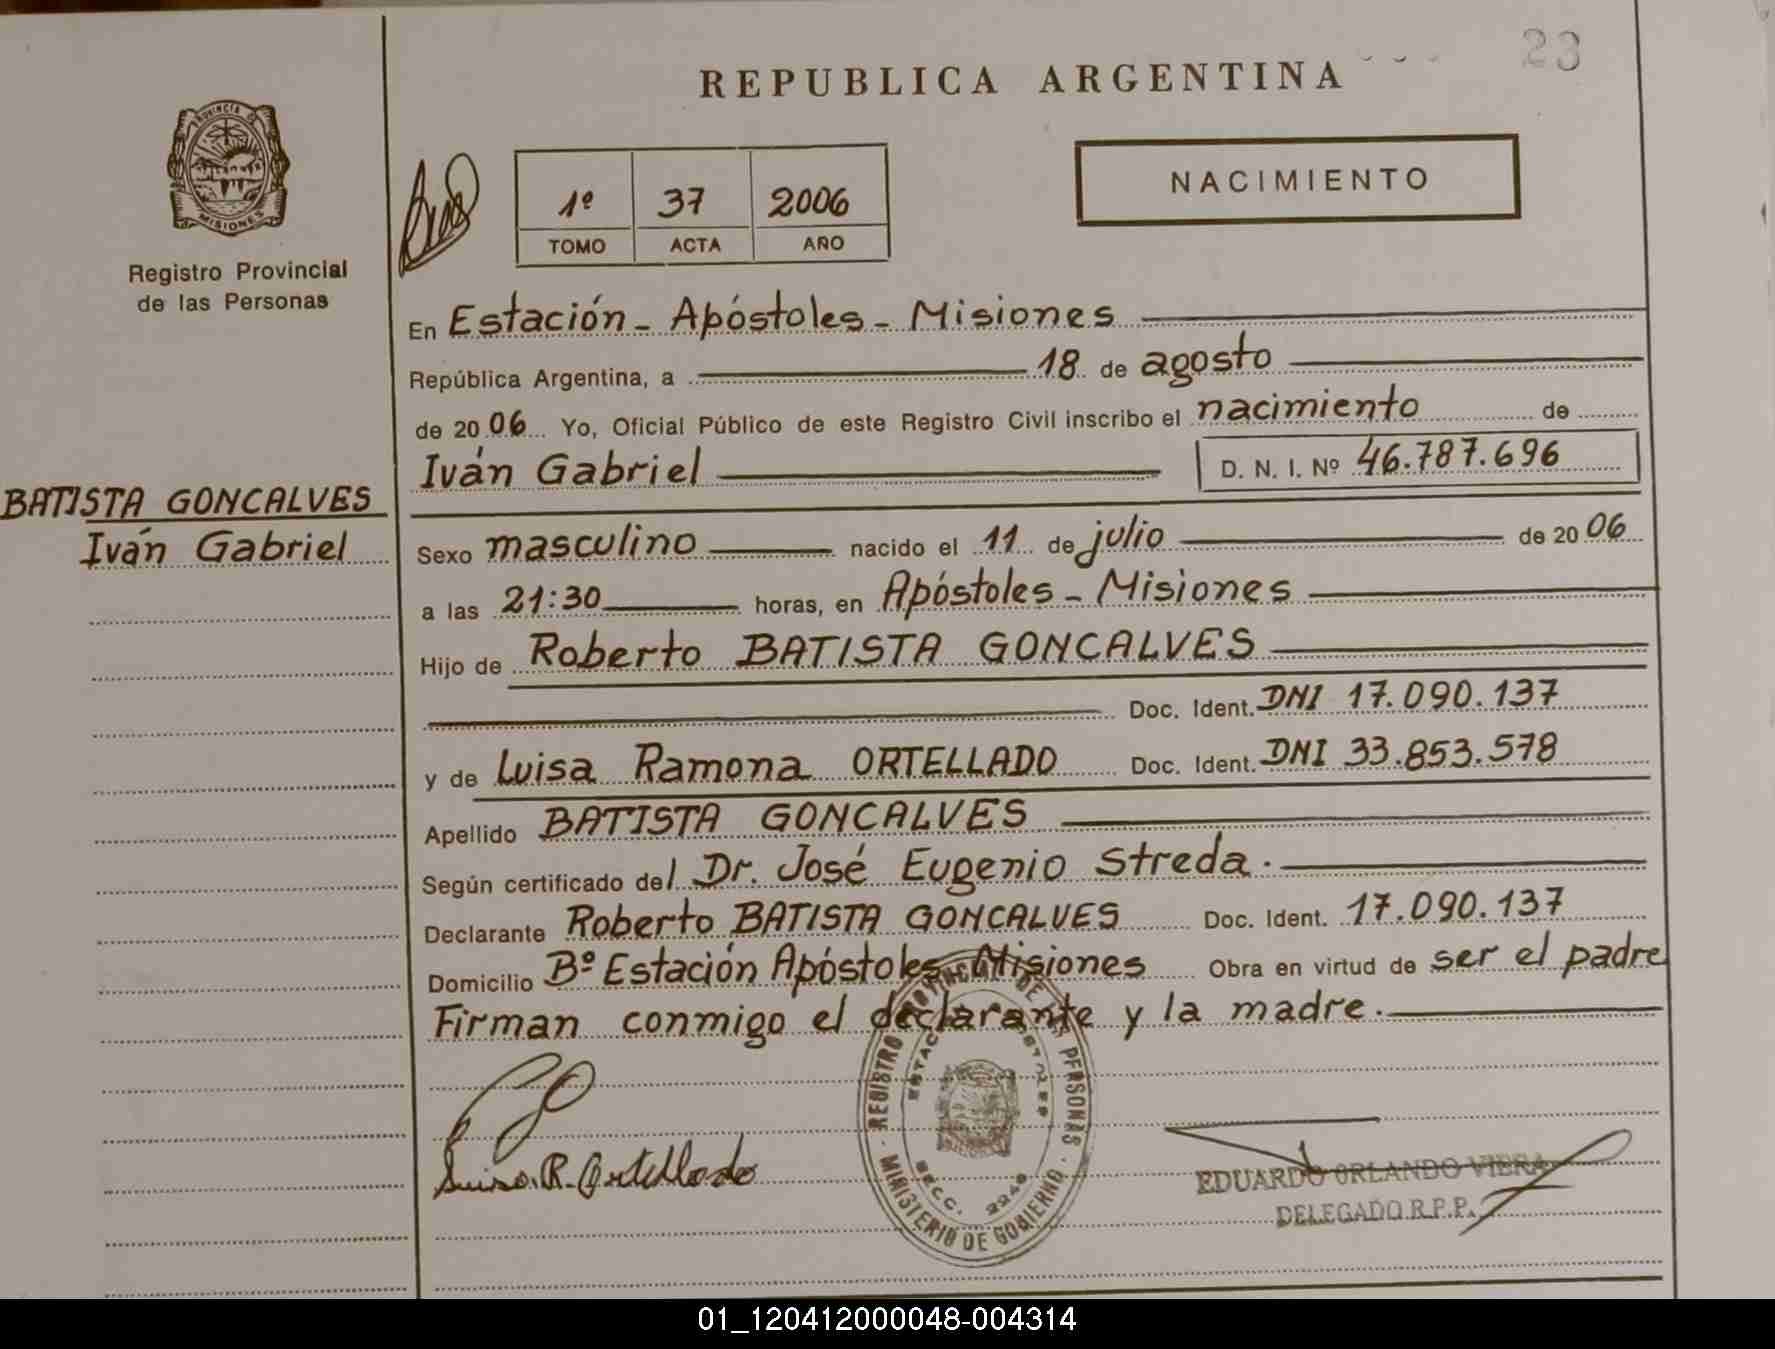 23
REPUBLICA ARGENTINA
PROVINCIA DE
MISIONES
Registro Provincial
de las Personas
1º 37 2006
TOMO ACTA AÑO
NACIMIENTO
En Estación - Apóstoles - Misiones
República Argentina, a 18 de agosto
de 2006 Yo, Oficial Público de este Registro Civil inscribo el nacimiento de
Iván Gabriel D. N. I. Nº 46.787.696
BATISTA GONCALVES
Iván Gabriel
Sexo masculino nacido el 11 de julio de 2006
a las 21:30 horas, en Apóstoles - Misiones
Hijo de Roberto BATISTA GONCALVES
Doc. Ident. DNI 17.090.137
y de Luisa Ramona ORTELLADO Doc. Ident. DNI 33.853.578
Apellido BATISTA GONCALVES
Según certificado del Dr. José Eugenio Streda.
Declarante Roberto BATISTA GONCALVES Doc. Ident. 17.090.137
Domicilio Bº Estación Apóstoles, Misiones Obra en virtud de ser el padre
Firman conmigo el declarante y la madre.
REGISTRO PROVINCIAL DE LAS PERSONAS
MINISTERIO DE GOBIERNO
SECC. 2240
Luisa R. Ortellado
EDUARDO ORLANDO VIERA
DELEGADO R.P.P.
01_120412000048-004314